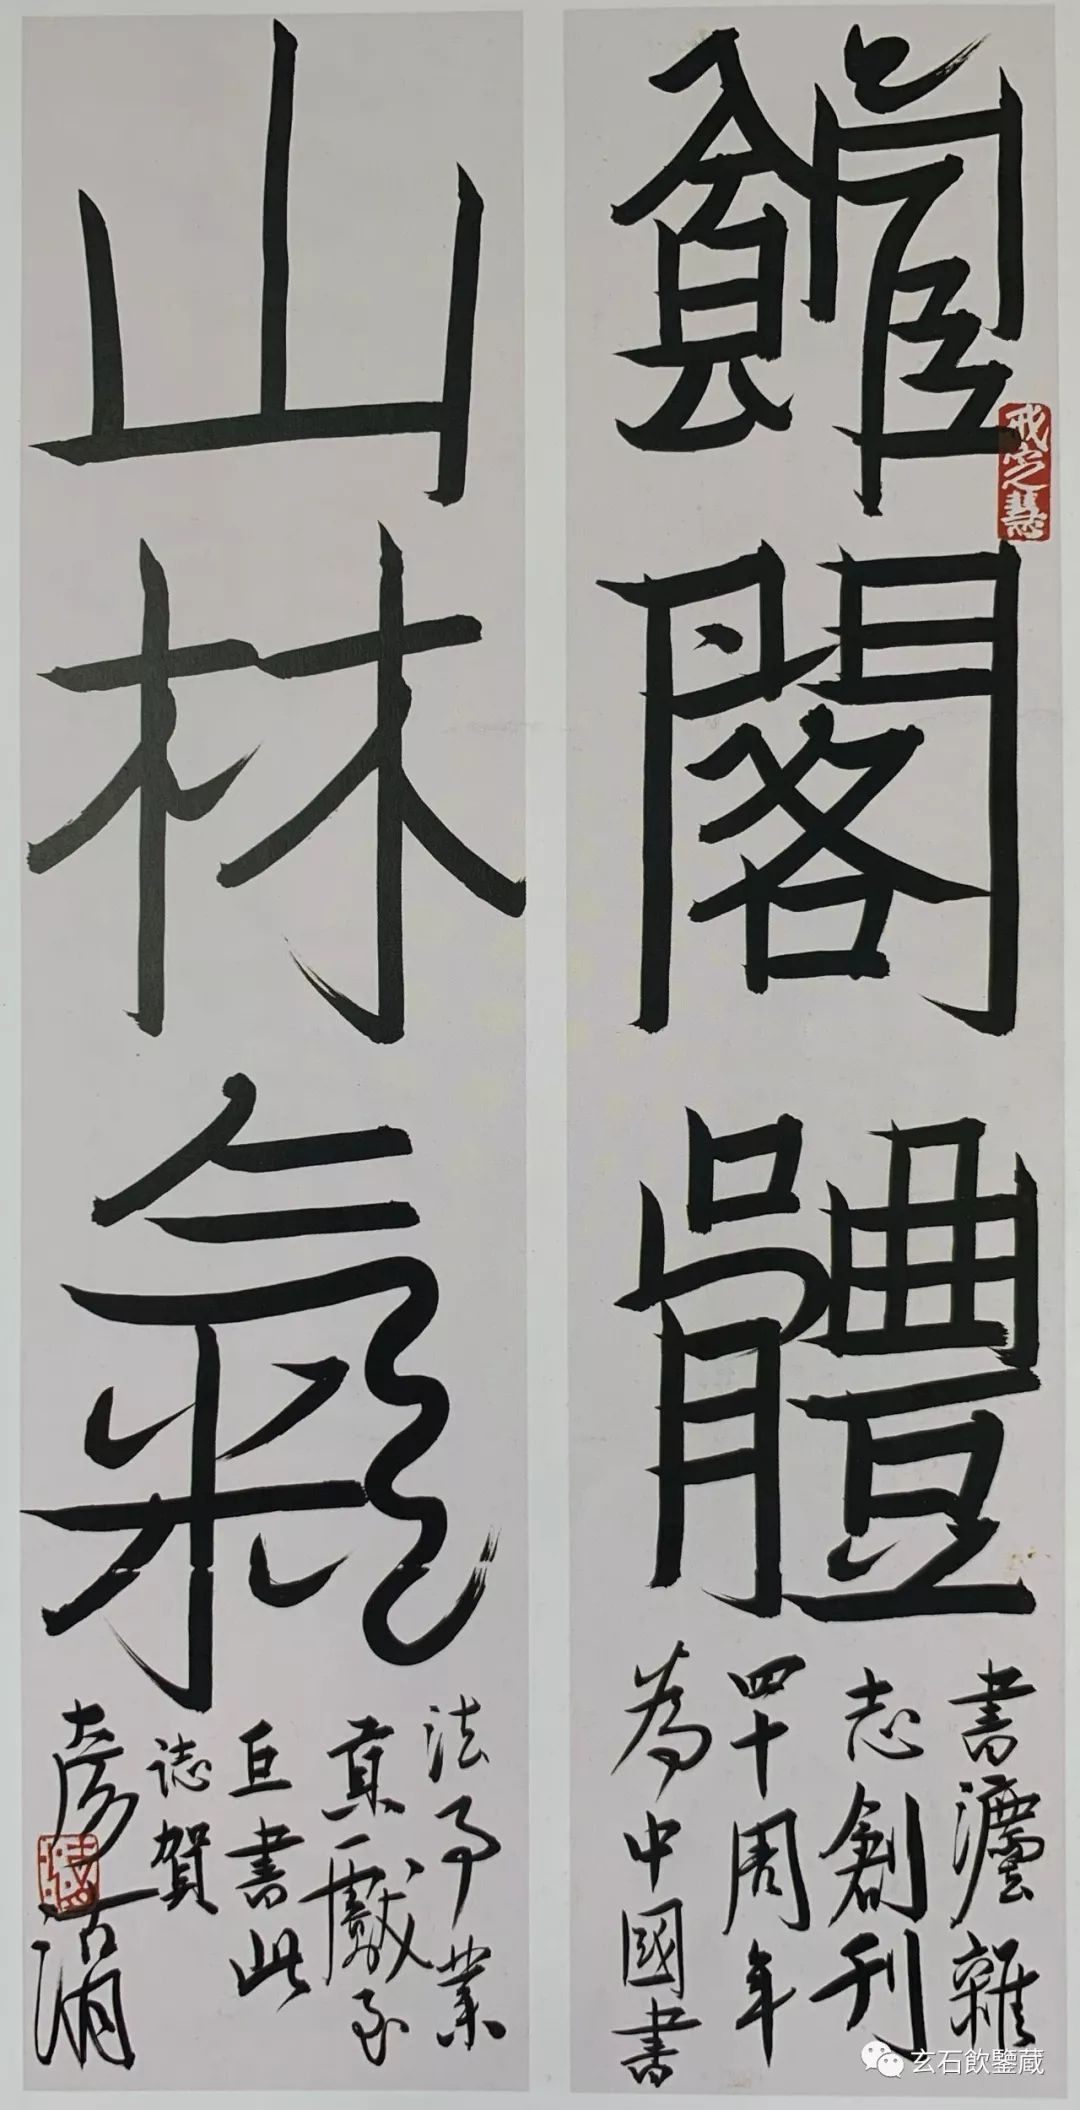 館閣體
戒定慧
書灋雜
志創刊
四十周年
為中國書
山林氣
法事業
貢獻至
巨書此
誌賀
玄石飲鑒蔵